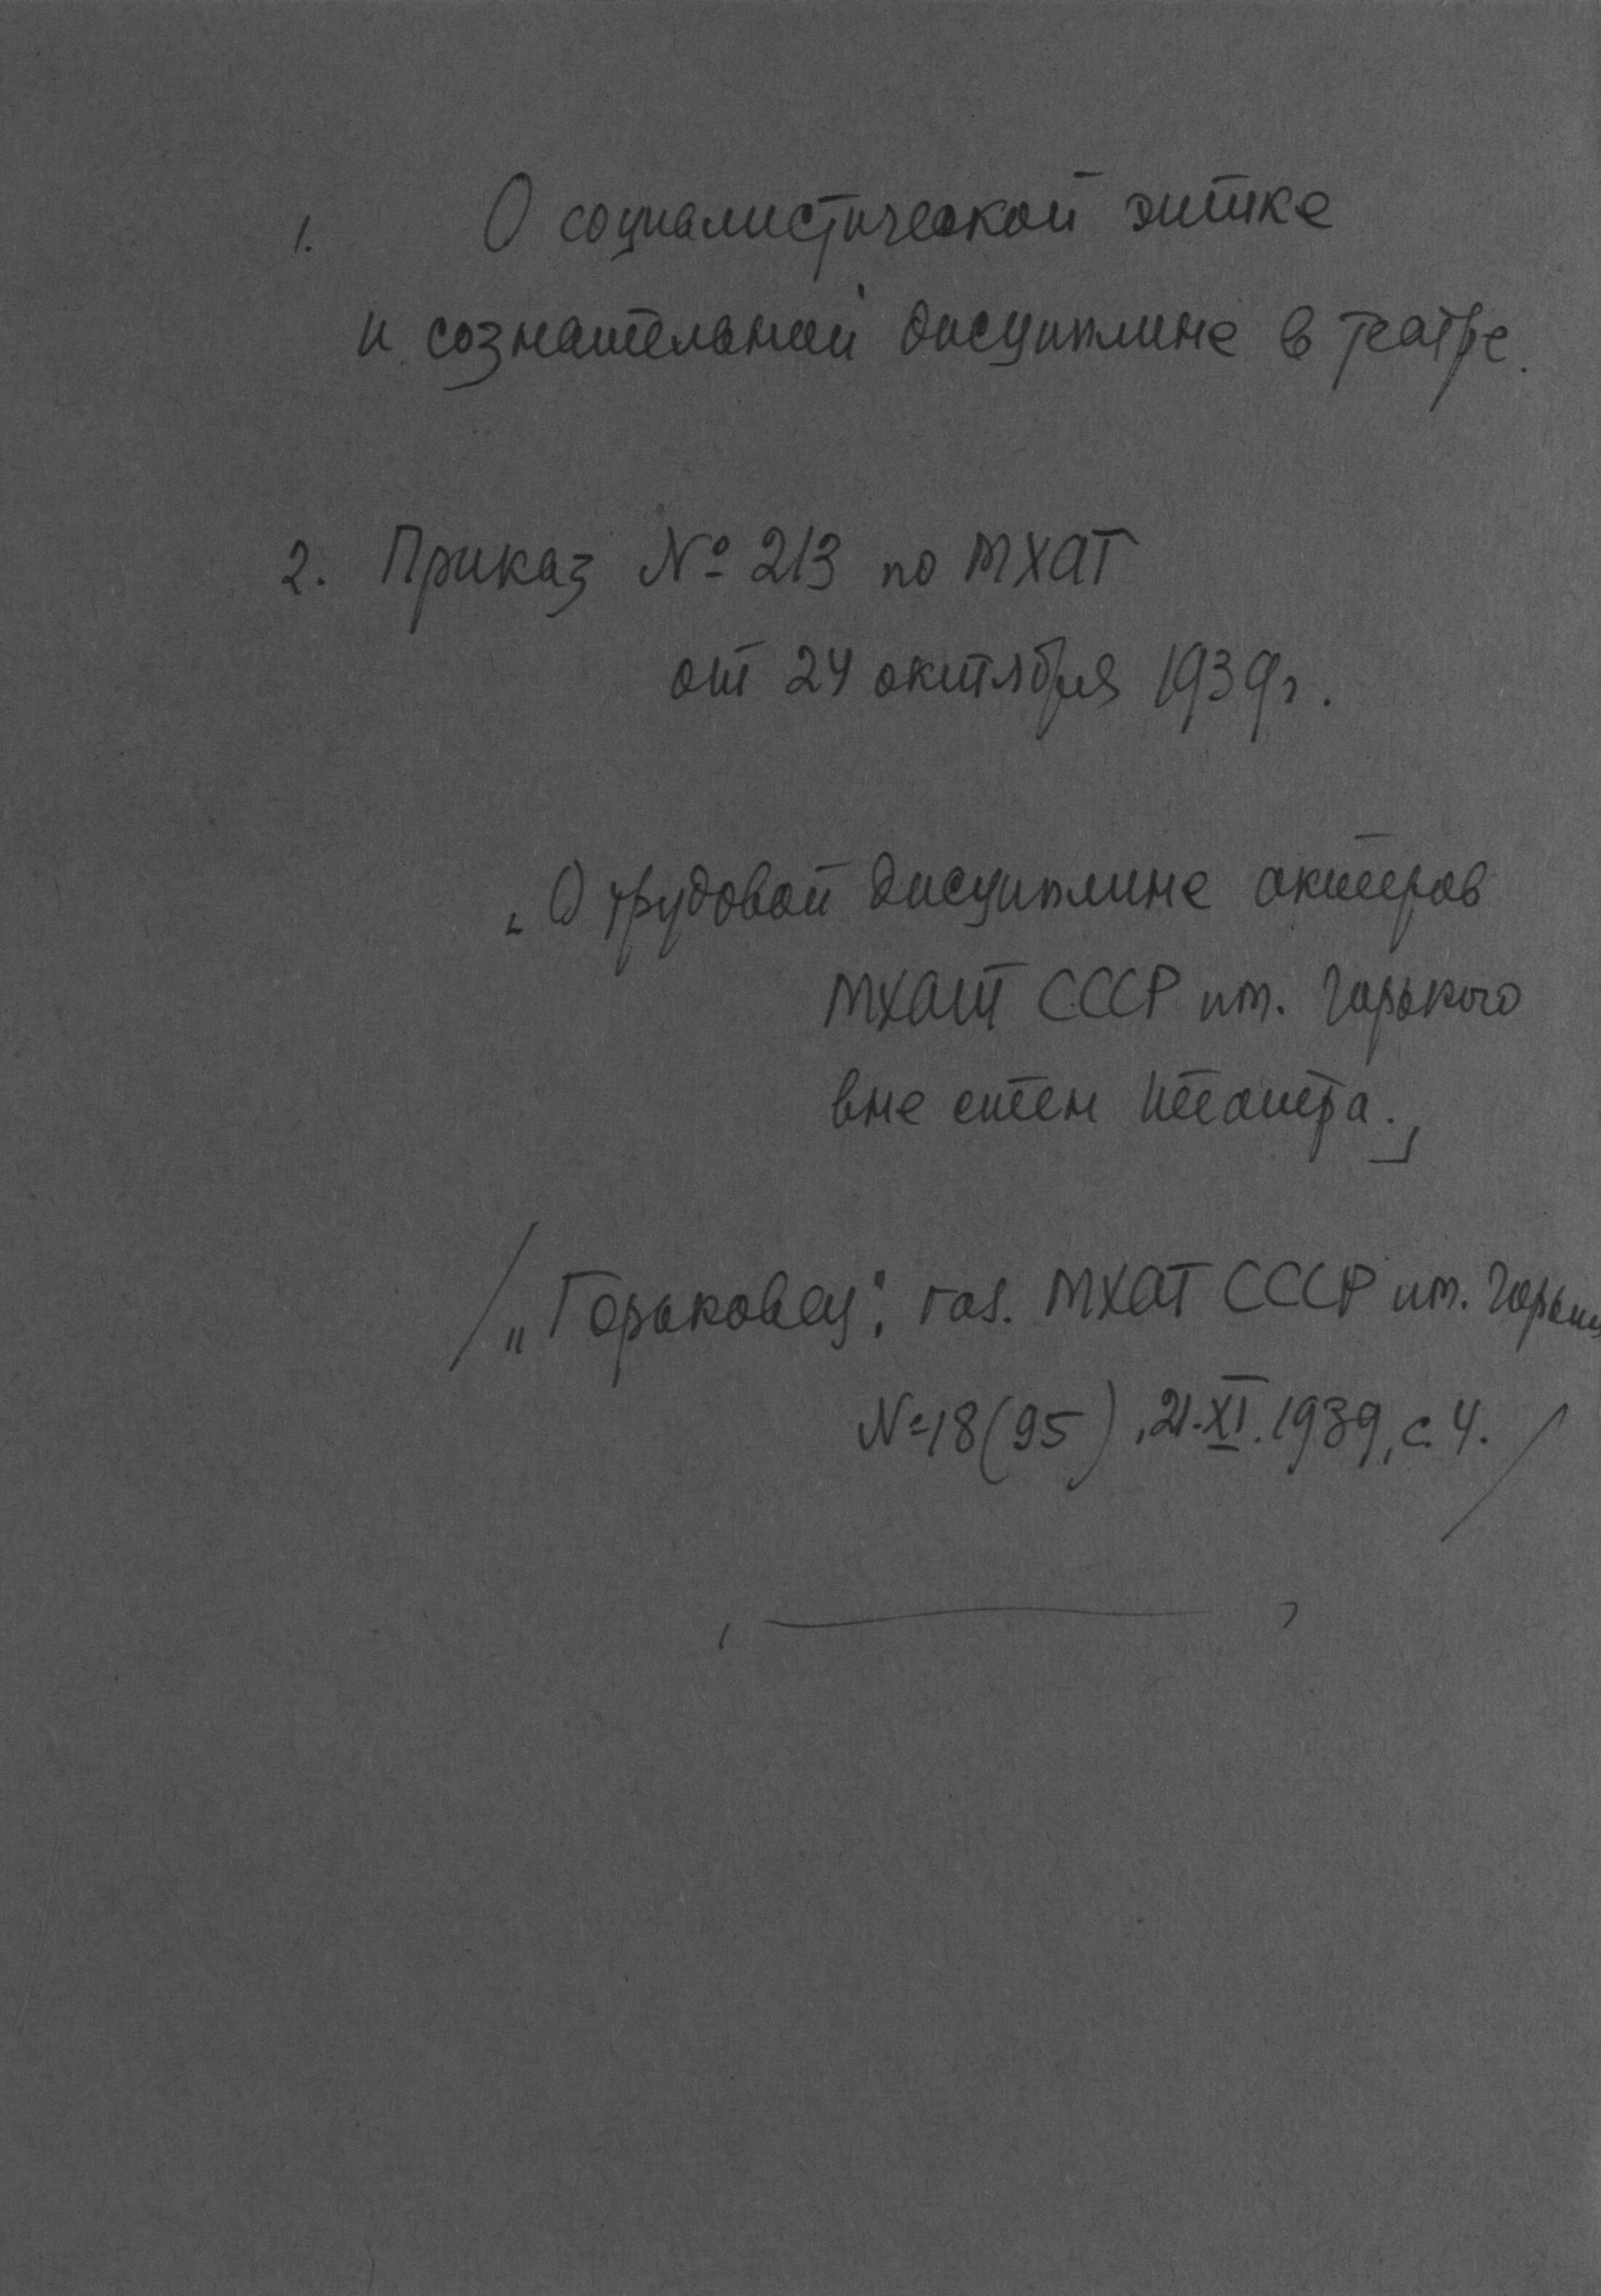 1. О социалистической этике
и сознательной дисциплине в театре.
2. Приказ № 213 по МХАТ
от 24 октября 1939 г.
„О трудовой дисциплине актеров
МХАТ СССР им. Горького
вне стен театра.“
/„Горьковец“, газ. МХАТ СССР им.
№ 18 (95), 21.XI.1939, с. 4./